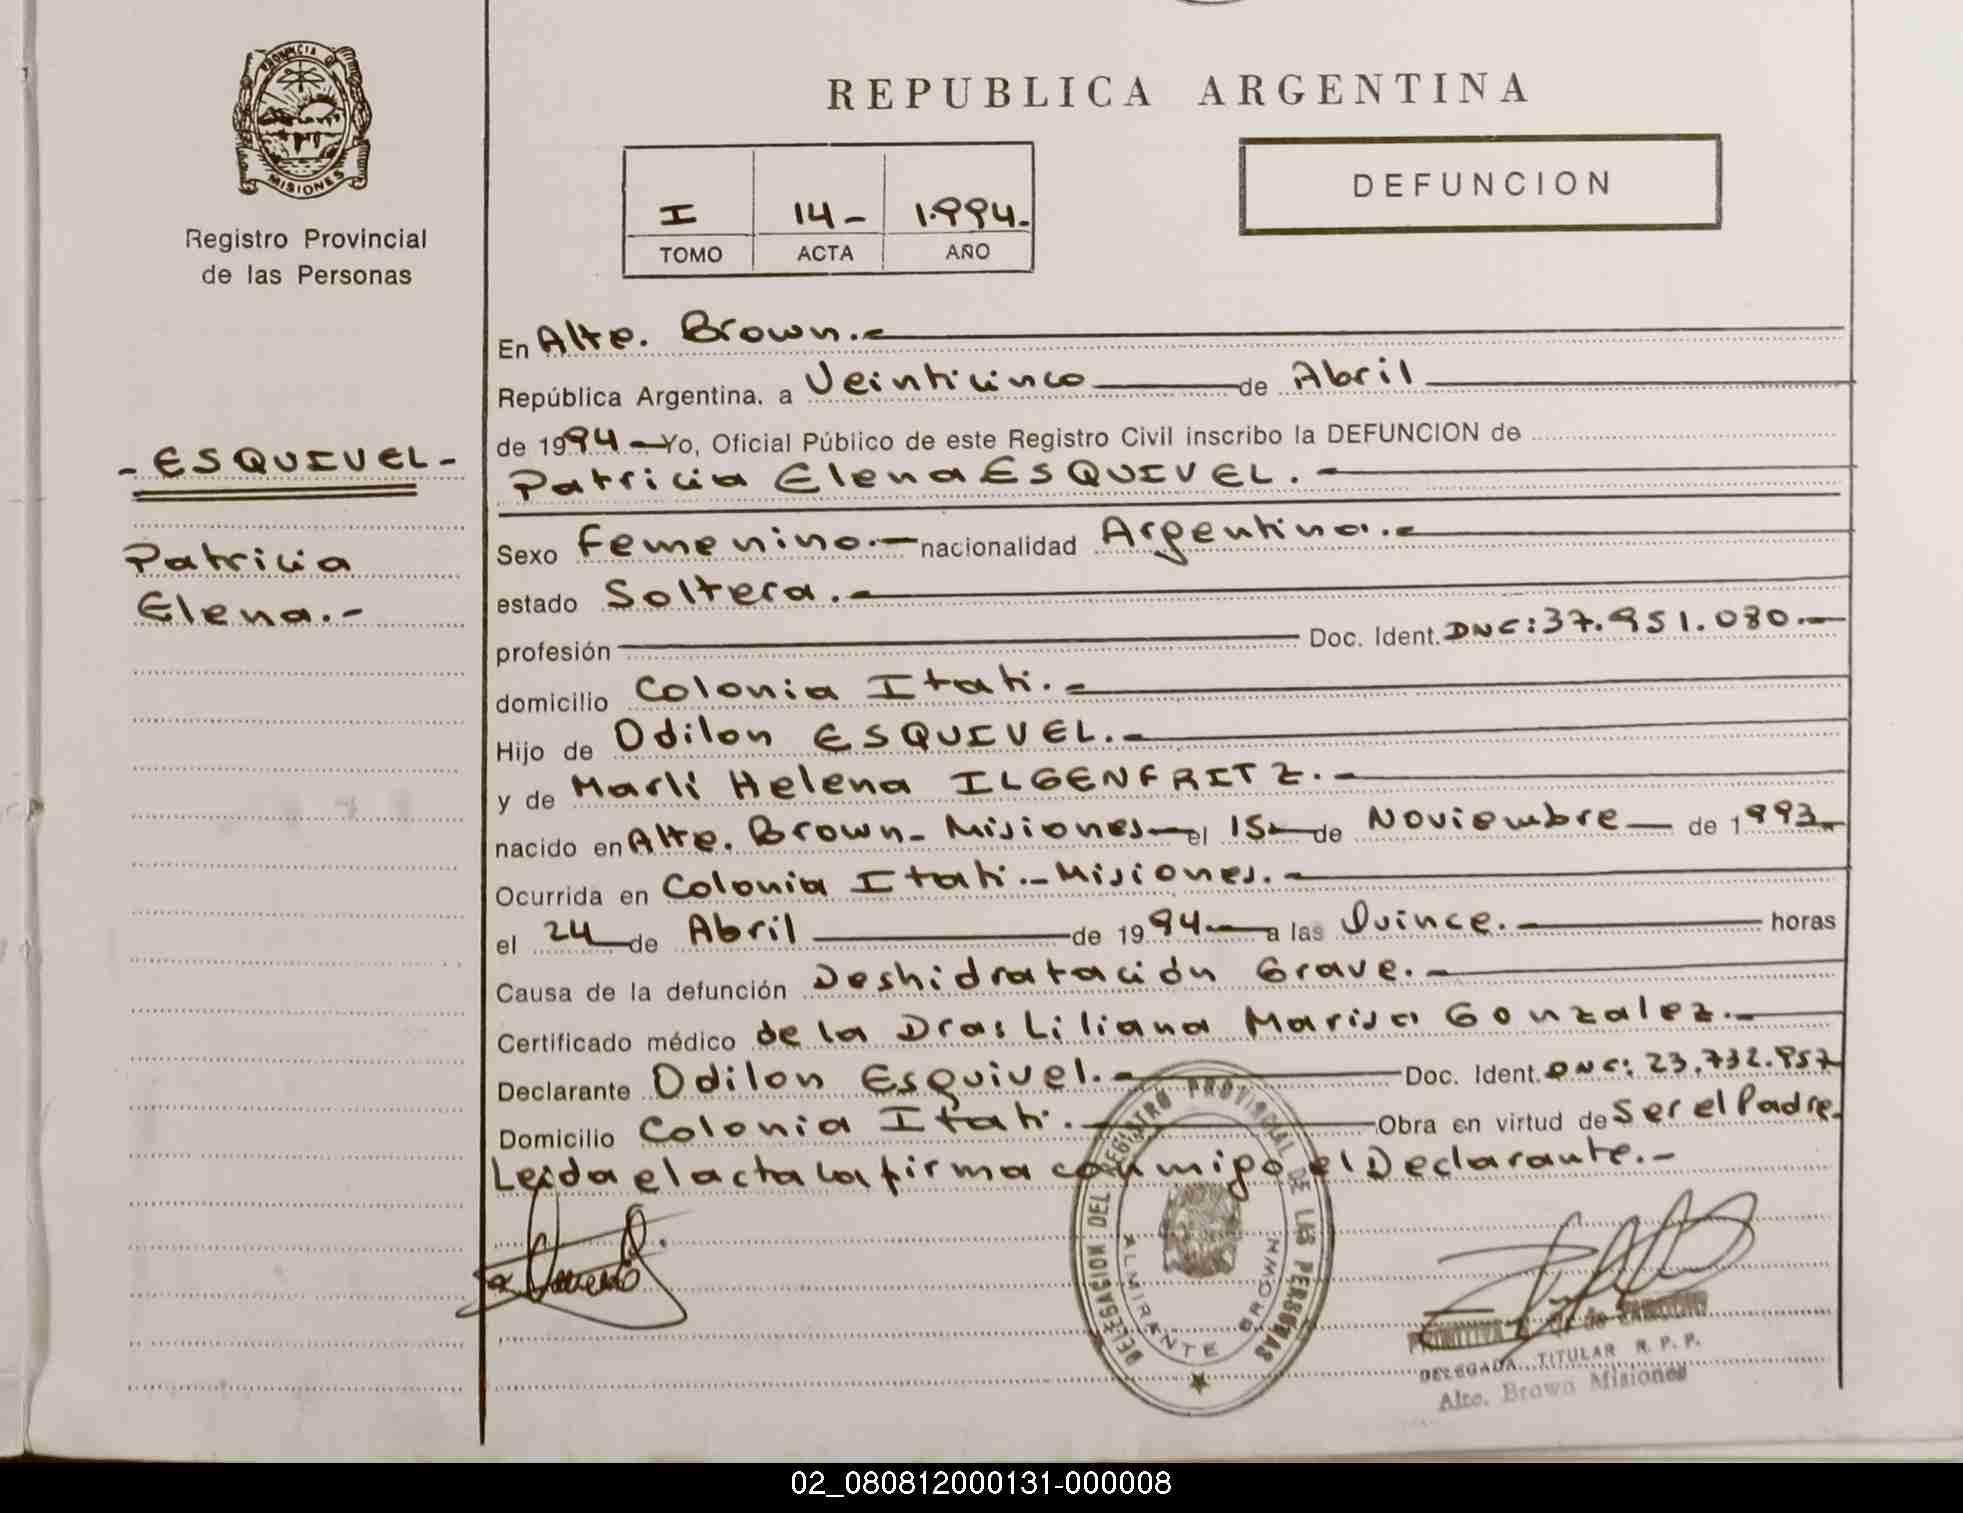 PROVINCIA DE
MISIONES
Registro Provincial
de las Personas
- ESQUIVEL -
Patricia
Elena.-
REPUBLICA ARGENTINA
I 14- 1.994.
TOMO ACTA AÑO
DEFUNCION
En Alte. Brown.-
República Argentina, a Veinticinco de Abril
de 1994 - Yo, Oficial Público de este Registro Civil inscribo la DEFUNCION de
Patricia Elena ESQUIVEL.-
Sexo Femenino.- nacionalidad Argentina.-
estado Soltera.-
profesión Doc. Ident. DNI: 37.951.080.-
domicilio Colonia Itati.-
Hijo de Odilon ESQUIVEL.-
y de Marli Helena ILGENFRITZ.-
nacido en Alte. Brown- Misiones- el 15- de Noviembre - de 1993
Ocurrida en Colonia Itati.- Misiones.-
el 24 de Abril de 1994 a las Quince.- horas
Causa de la defunción Deshidratación Grave.-
Certificado médico de la Dra: Liliana Marisa Gonzalez.-
Declarante Odilon Esquivel.- Doc. Ident. DNI: 23.732.957
Domicilio Colonia Itati.- Obra en virtud de Ser el Padre.
Leida el acta la firma conmigo el Declarante.-
DELEGACION DEL REGISTRO PROVINCIAL DE LAS PERSONAS
ALMIRANTE BROWN
DELEGADA TITULAR R. P. P.
Alte. Brown Misiones
02_080812000131-000008